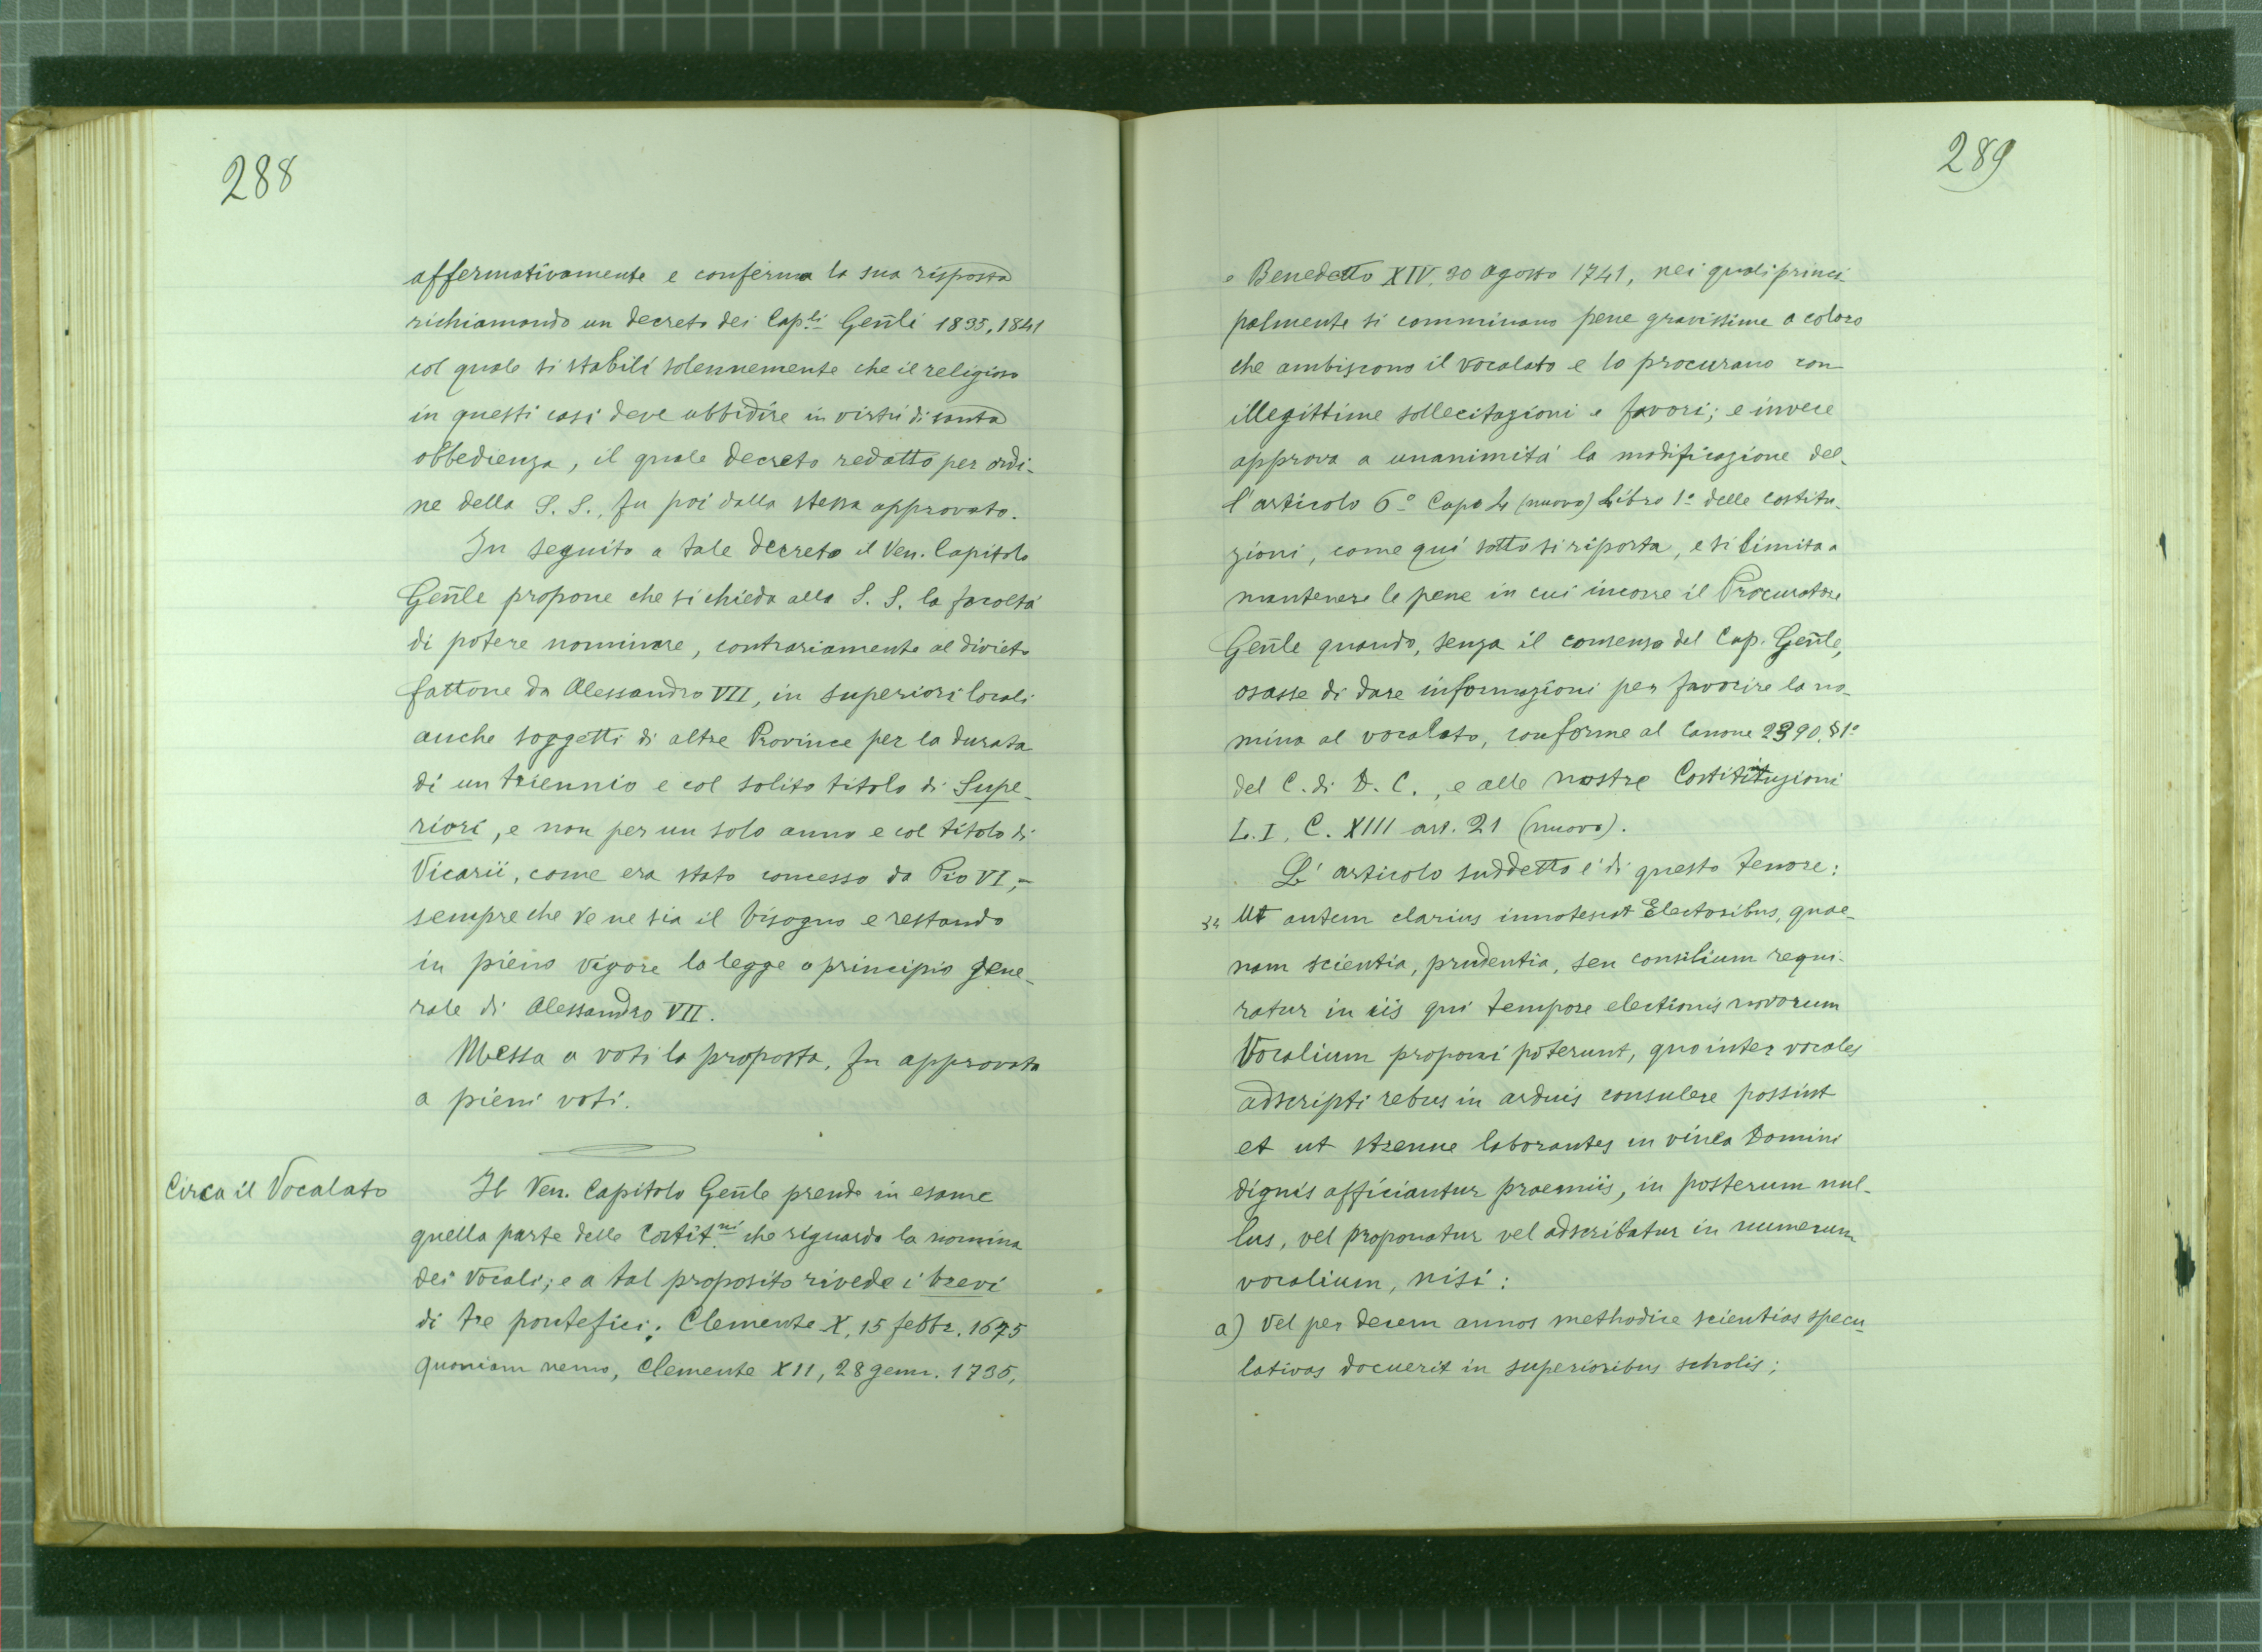 288
affermativamente e conferma la sua risposta
richiamando un decreto dei Cap.li Gen̄li 1835, 1841
col quale si stabilì solennemente che il religioso
in questi casi deve ubbidire in virtù di santa
obbedienza, il quale decreto redatto per ordi-
ne della S. S., fu poi dalla stessa approvato.
In seguito a tale decreto il Ven. Capitolo
Gen̄le propone che si chieda alla S. S. la facoltà
di potere nominare, contrariamente al divieto
fattone da Alessandro VII, in superiori locali
anche soggetti di altre Province per la durata
di un triennio e col solito titolo di Supe-
riori, e non per un solo anno e col titolo di
Vicarii, come era stato concesso da Pio VI,-
sempre che ve ne sia il bisogno e restando
in pieno vigore la legge o principio gene-
rale di Alessandro VII.
Messa a voti la proposta, fu approvata
a pieni voti.
Circa il Vocalato
Il Ven. Capitolo Gen̄le prende in esame
quella parte delle Costit.ni che riguarda la nomina
dei Vocali; e a tal proposito rivede i brevi
di tre pontefici: Clemente X, 15 febbr. 1675
quoniam nemo, Clemente XII, 28 genn. 1735,
289
e Benedetto XIV, 30 agosto 1741, nei quali princi-
palmente si comminano pene gravissime a coloro
che ambiscono il vocalato e lo procurano con
illegittime sollecitazioni e favori; e invece
approva a unanimità la modificazione del-
l'articolo 6º Capo 4 (nuovo) Libro 1º delle costitu-
zioni, come qui sotto si riporta, e si limita a
mantenere le pene in cui incorre il Procuratore
Gen̄le quando, senza il consenso del Cap. Gen̄le,
osasse di dare informazioni per favorire la no-
mina al vocalato, conforme al Canone 2390, § 1º
del C. di D. C., e alle nostre Costitituzioni
L. I, C. XIII art. 21 (nuovo).
L' articolo suddetto è di questo tenore:
" Ut autem clarius innotescat Electoribus, quae-
nam scientia, prudentia, seu consilium requi-
ratur in iis qui tempore electionis novorum
Vocalium proponi poterunt, quo inter vocales
adscripti rebus in arduis consulere possint
et ut strenue laborantes in vinea Domini
dignis afficiantur praemiis, in posterum nul-
lus, vel proponatur vel adscribatur in numerum
vocalium, nisi:
a) Vel per decem annos methodice scientias specu-
lativas docuerit in superioribus scholis;